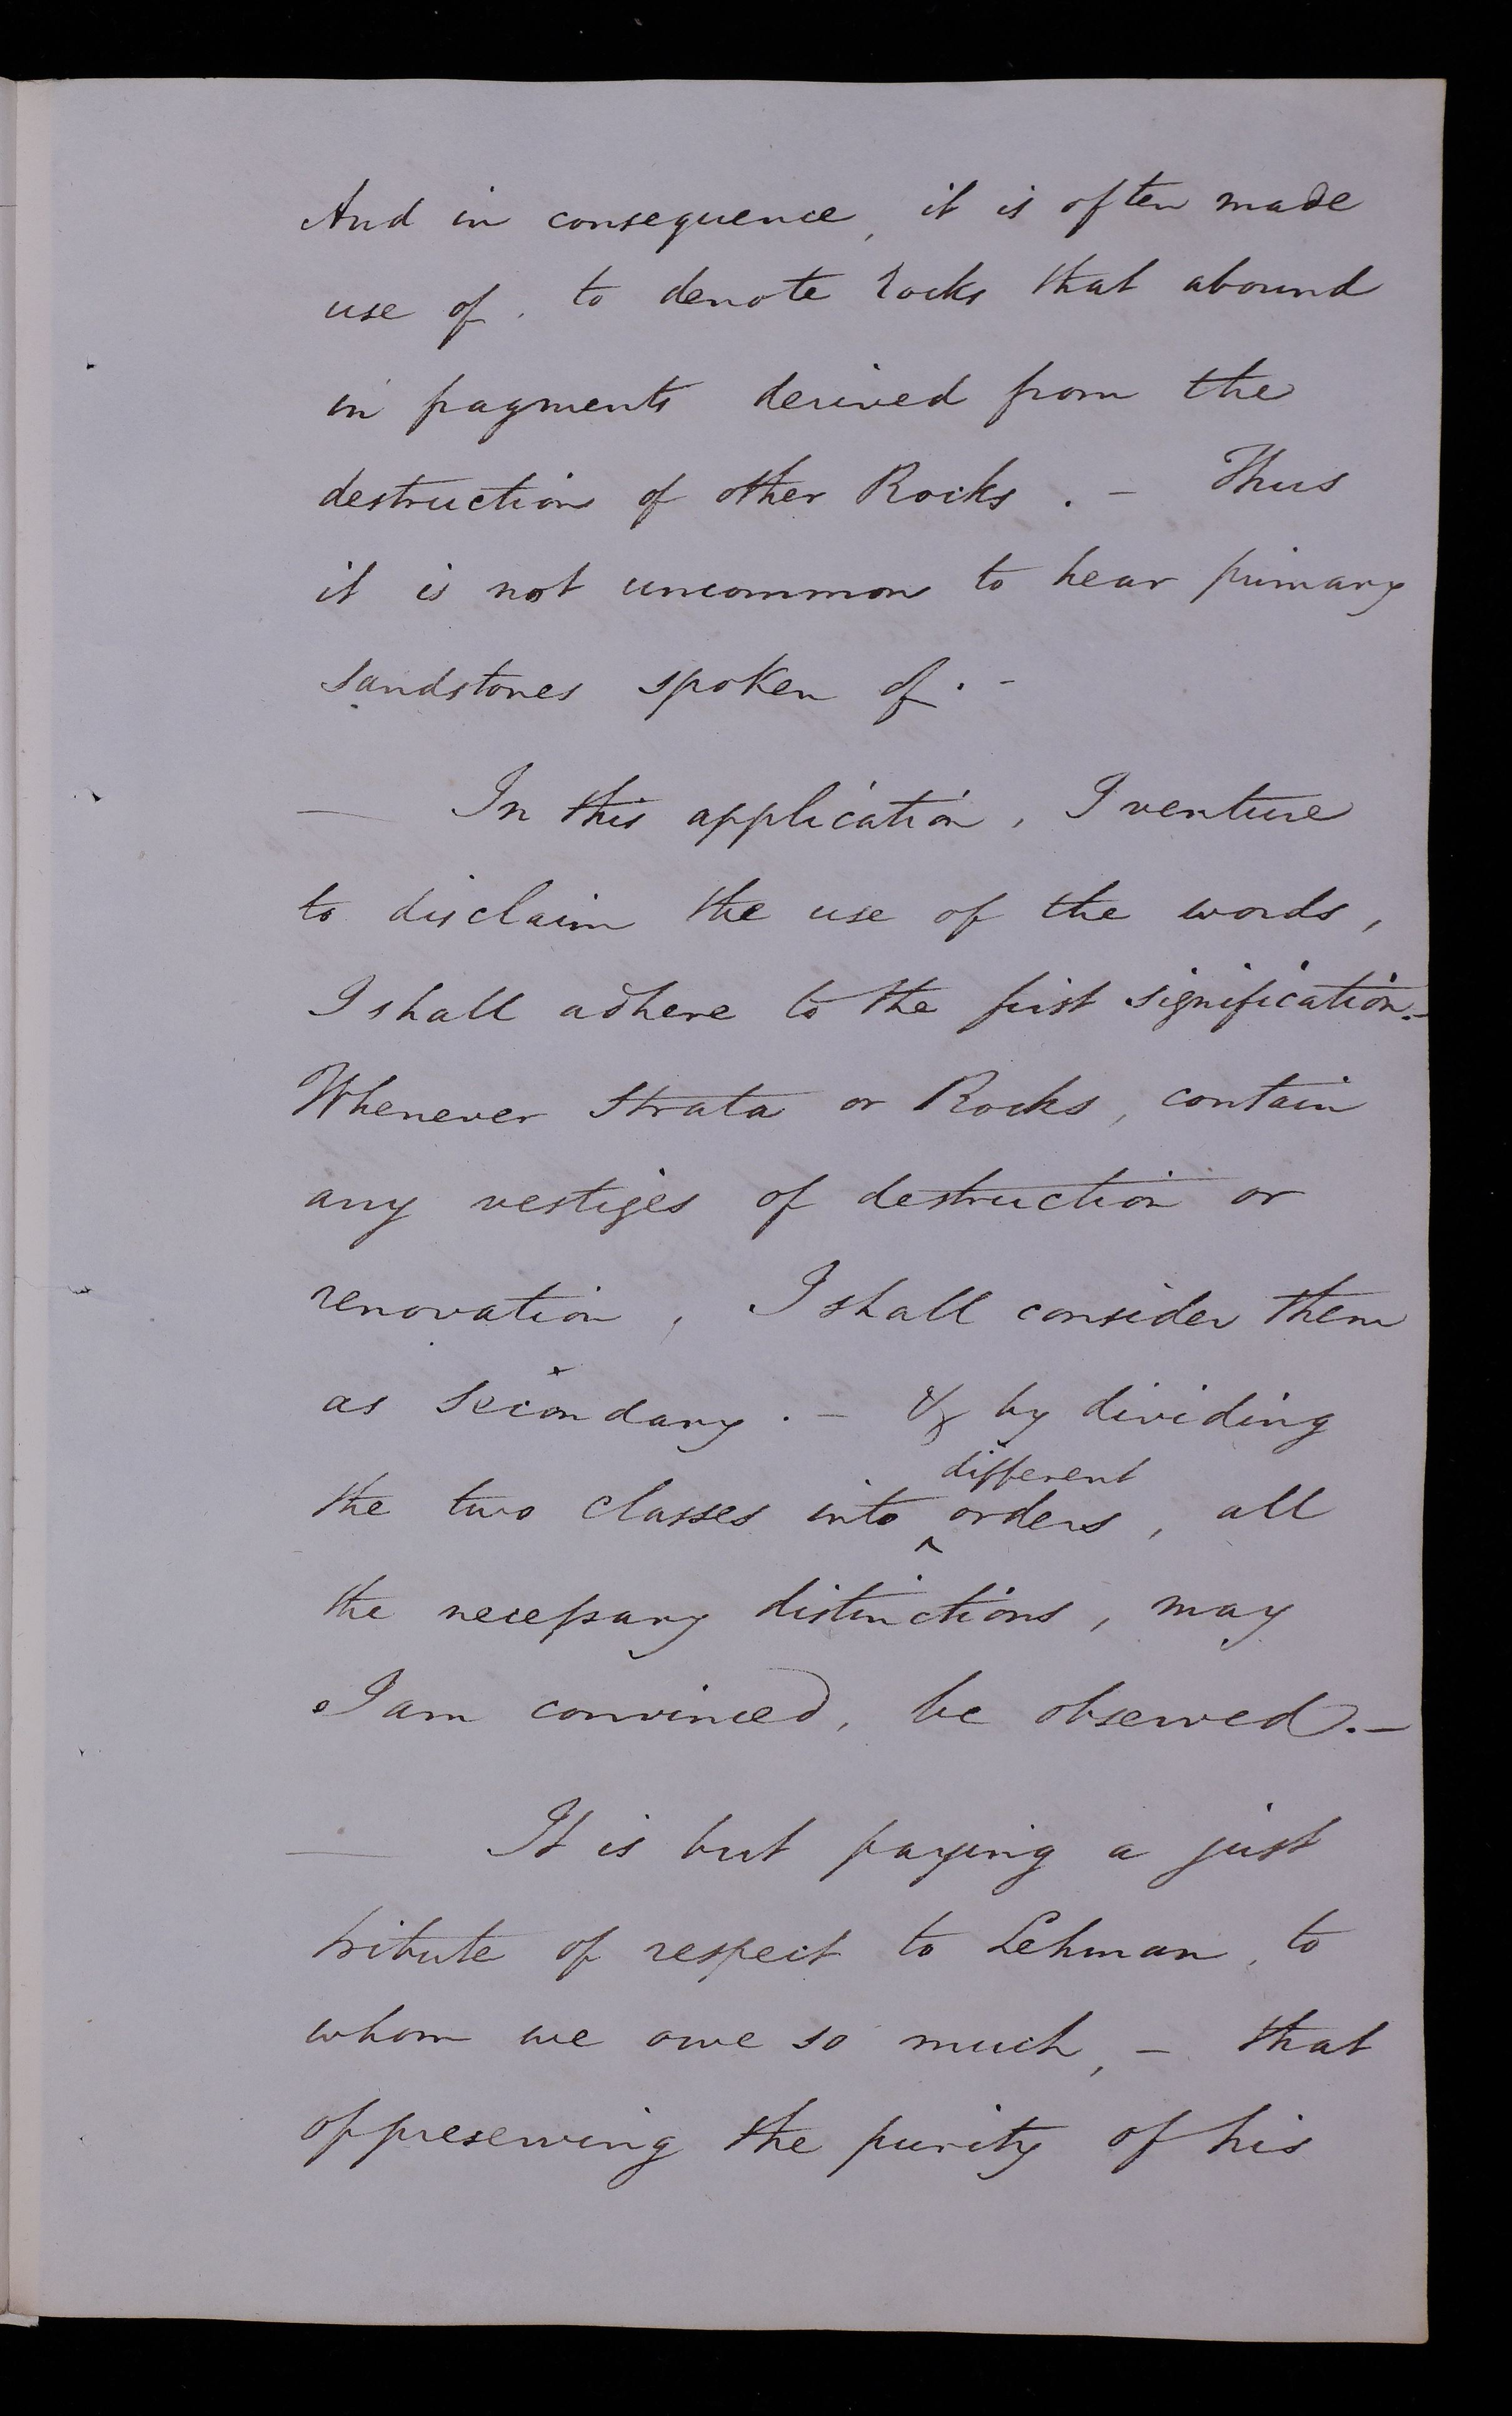 And in consequence, it is often made
use of, to denote rocks that abound
in fragments derived from the
destruction of other Rocks. — Thus
it is not uncommon to hear primary
sandstones spoken of. —
— In this application, I venture
to disclaim the use of the words,
I shall adhere to the first signification. —
Whenever Strata or Rocks, contain
any vestiges of destruction or
renovation, I shall consider them
as Secondary. — & by dividing
the two Classes into ^different orders, all
the necessary distinctions, may
I am convinced, be observed. —
— It is but paying a just
tribute of respect to Lehman, to
whom we owe so much, — that
of preserving the purity of his